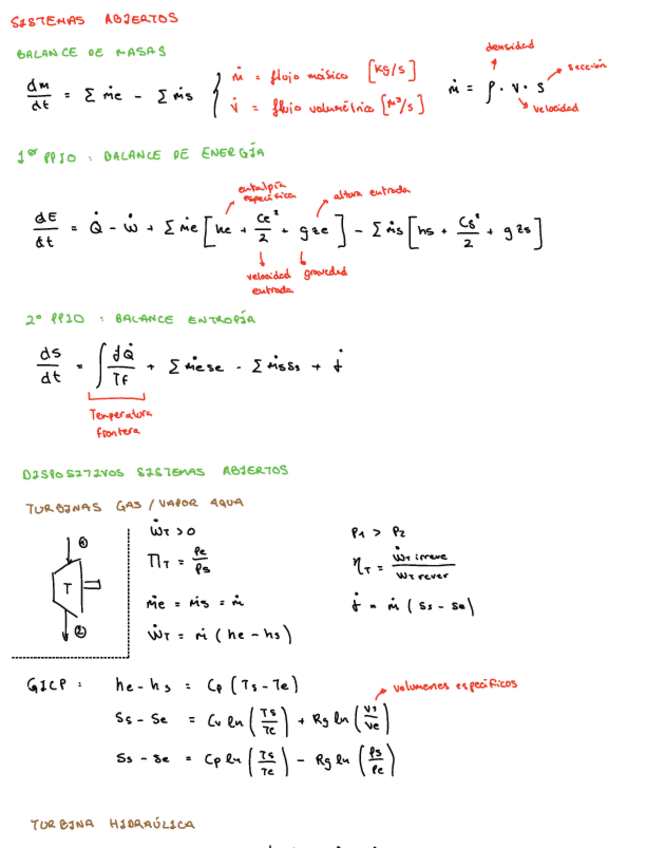 SISTEMAS ABIERTOS
BALANCE DE MASAS
densidad
sección
dm/dt = Σ ṁe - Σ ṁs { ṁ = flujo másico [kg/s]   ṁ = ρ · v · S
v̇ = flujo volumétrico [m³/s]
velocidad
1er PPIO : BALANCE DE ENERGÍA
entalpía específica
altura entrada
dE/dt = Q̇ - Ẇ + Σ ṁe [he + Ce²/2 + g ze] - Σ ṁs [hs + Cs²/2 + g zs]
velocidad entrada
gravedad
2º PPIO : BALANCE ENTROPÍA
ds/dt = ∫ đQ̇/Tf + Σ ṁese - Σ ṁsSs + σ̇
Temperatura
frontera
DISPOSITIVOS SISTEMAS ABIERTOS
TURBINAS GAS / VAPOR AQUA
ẆT > 0   P1 > P2
①
T
②
ΠT = Pe/Ps   ηT = ẆT irreve/WT rever
ṁe = ṁs = ṁ   σ̇ = ṁ (Ss - Se)
ẆT = ṁ (he - hs)
GICP : he - hs = Cp (Ts - Te)
volumenes específicos
Ss - Se = Cv ln (Ts/Te) + Rg ln (Vs/Ve)
Ss - Se = Cp ln (Ts/Te) - Rg ln (Ps/Pe)
TURBINA HIDRAÚLICA